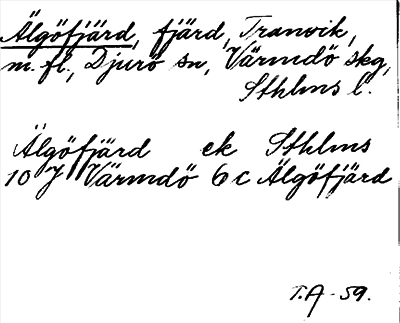 Älgöfjärd, fjärd, Tranvik,
m. fl., Djurö sn, Värmdö skg,
Sthlms l.
Älgöfjärd ek Sthlms
10 J Värmdö 6c Älgöfjärd
T.A -59.